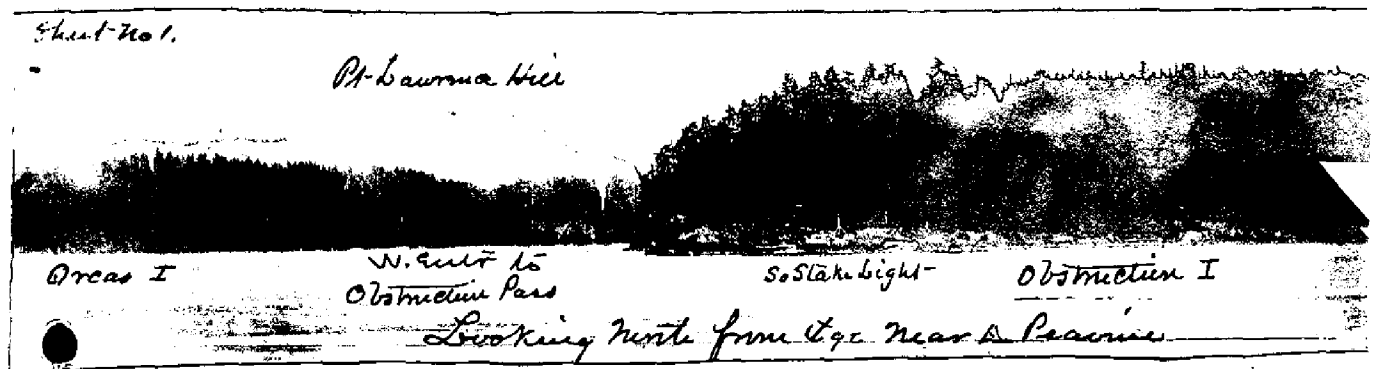 Sheet No 1.
Pt Lawrence Hill
Orcas I
W. Entr to
Obstruction Pass
So Stake Light
Obstruction I
Looking North from Edge Near Δ Peavine